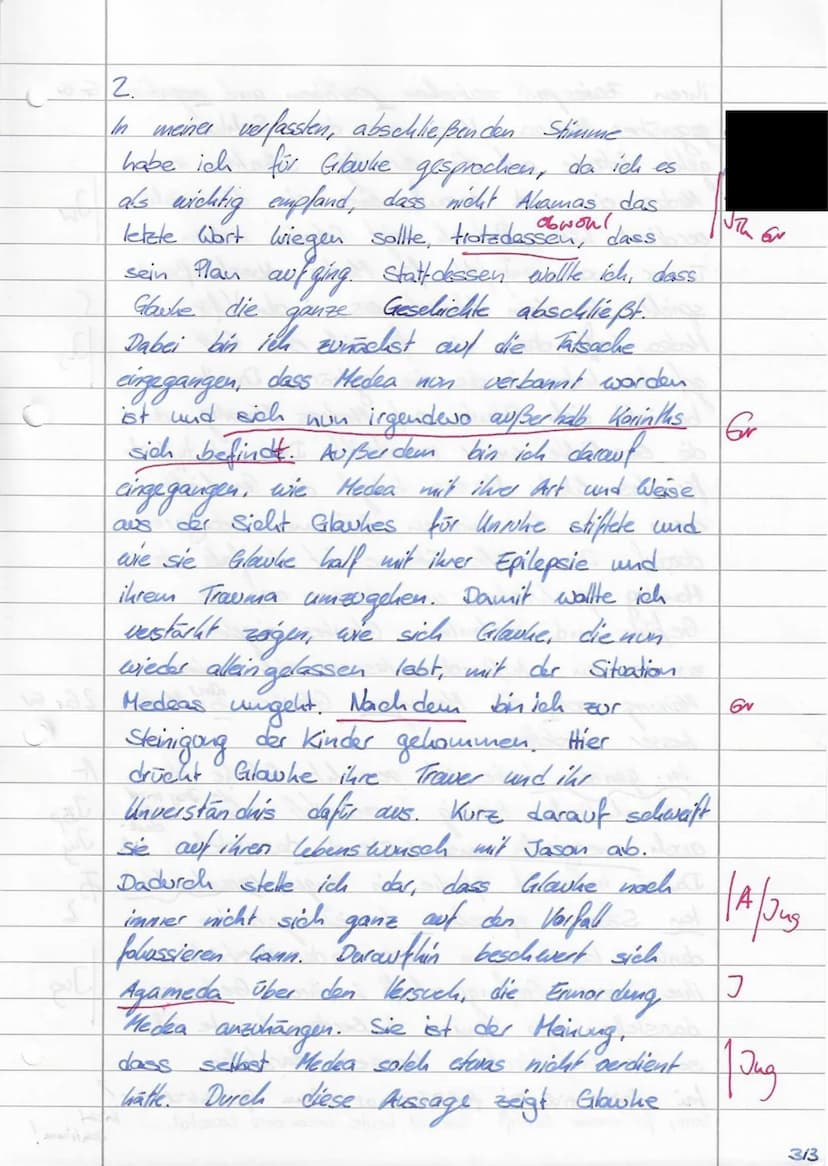 2.
In meiner verfassten, abschließenden Stimme
habe ich für Glauke gesprochen, da ich es
als wichtig empfand, dass nicht Akamas das
obwohl
letzte Wort wiegen sollte, trotzdassen, dass
Gr
sein Plan aufging. Stattdessen wollte ich, dass
Glauke die ganze Geschichte abschließt.
Dabei bin ich zunächst auf die Tatsache
eingegangen, dass Medea nun verbannt worden
ist und sich nun irgendwo außerhalb Korinths
Gr
sich befindt. Außerdem bin ich darauf
eingegangen, wie Medea mit ihrer Art und Weise
aus der Sicht Glaukes für Unruhe stiftete und
wie sie Glauke half mit ihrer Epilepsie und
ihrem Trauma umzugehen. Damit wollte ich
verstärkt zeigen, wie sich Glauke, die nun
wieder alleingelassen lebt, mit der Situation
Medeas umgeht. Nachdem bin ich zur
Gr
Steinigung der Kinder gekommen. Hier
drückt Glauke ihre Trauer und ihr
Unverständnis dafür aus. Kurz darauf schweift
sie auf ihren Lebenswunsch mit Jason ab.
Dadurch stelle ich dar, dass Glauke noch
A/Jug
immer nicht sich ganz auf den Vorfall
fokassieren kann. Daraufhin beschwert sich
Agameda über den Versuch, die Ermordung
J
Medea anzuhängen. Sie ist der Meinung,
dass selbst Medea solch etwas nicht verdient
Jug
hätte. Durch diese Aussage zeigt Glauke
3/3